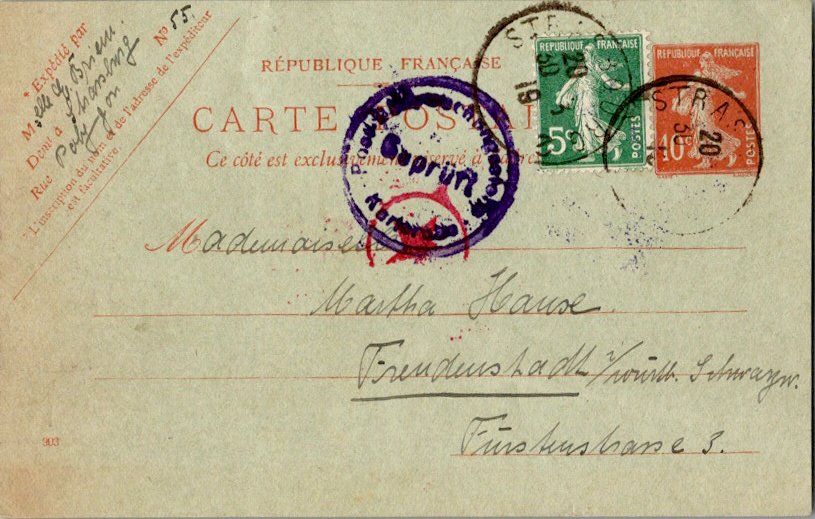 * Expédié par
Melle L. Briem.
Dont à Strassburg
Rue Polygon Nº 55.
L'inscription du nom et de l'adresse de l'expéditeur
est facultative.
RÉPUBLIQUE FRANÇAISE
CARTE POSTALE
Ce côté est exclusivement réservé à
Geprüft
Karlsruhe
STRASBOURG
20
30 5
19
RÉPUBLIQUE FRANÇAISE
5c
POSTES
RÉPUBLIQUE FRANÇAISE
10c
POSTES
STRAS
20
30
19
Mademoiselle
Martha Hause
Freudenstadt i/württ. Schwarzw.
Fürstenstrasse 3.
903